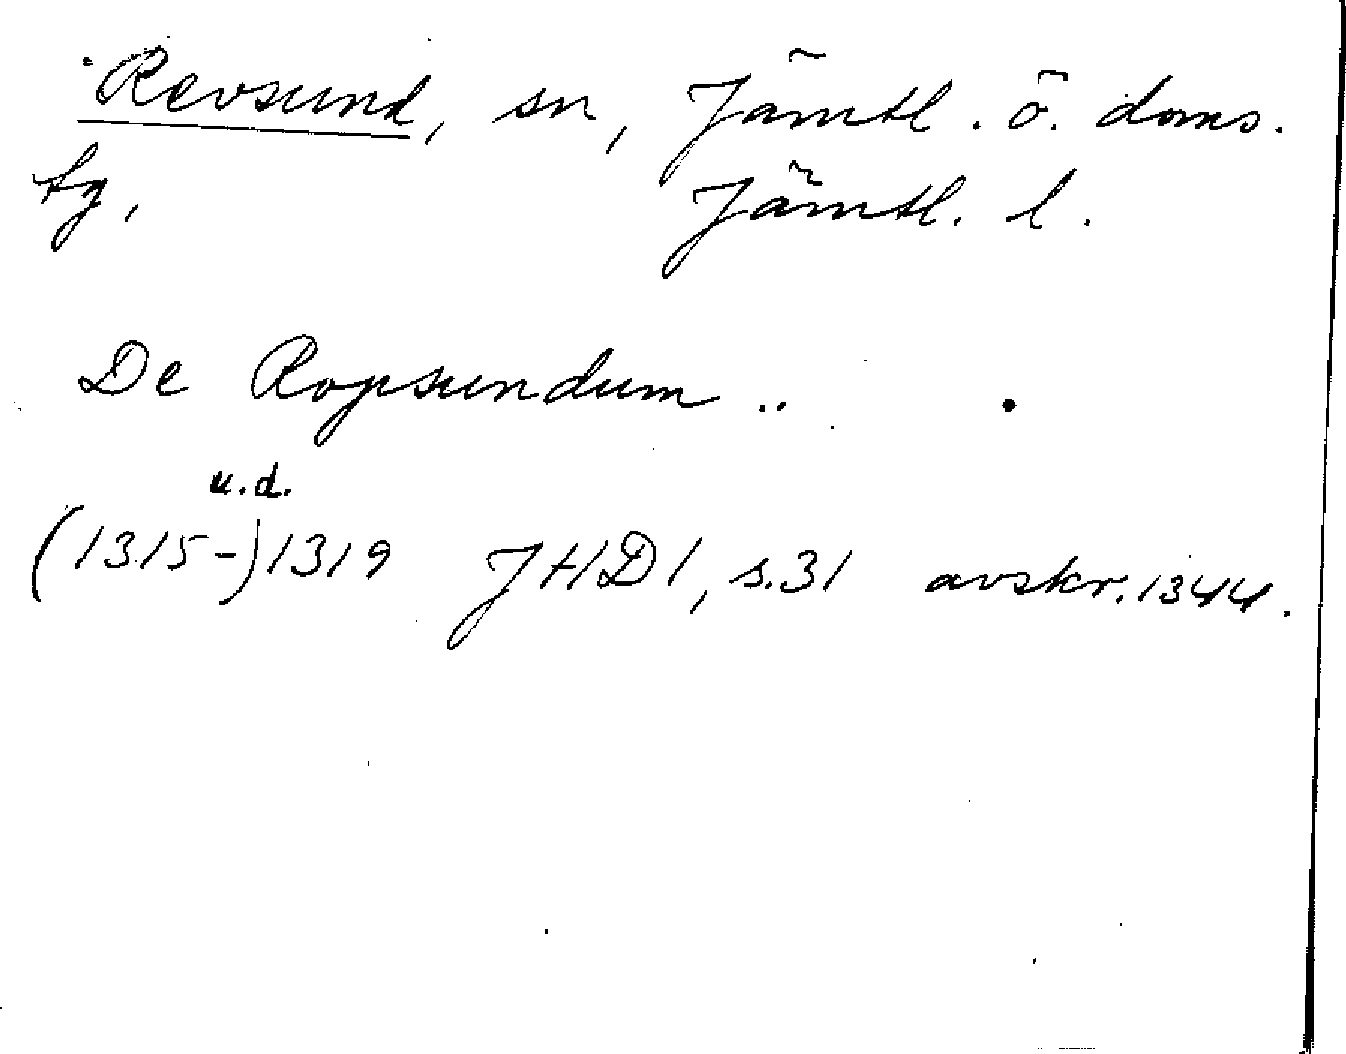 Revsund, sn, Jämtl. ö. doms.
tg, Jämtl. l.
De Ropsundum ..
u.d.
(1315-)1319 JHD1, s.31 avskr. 1344.